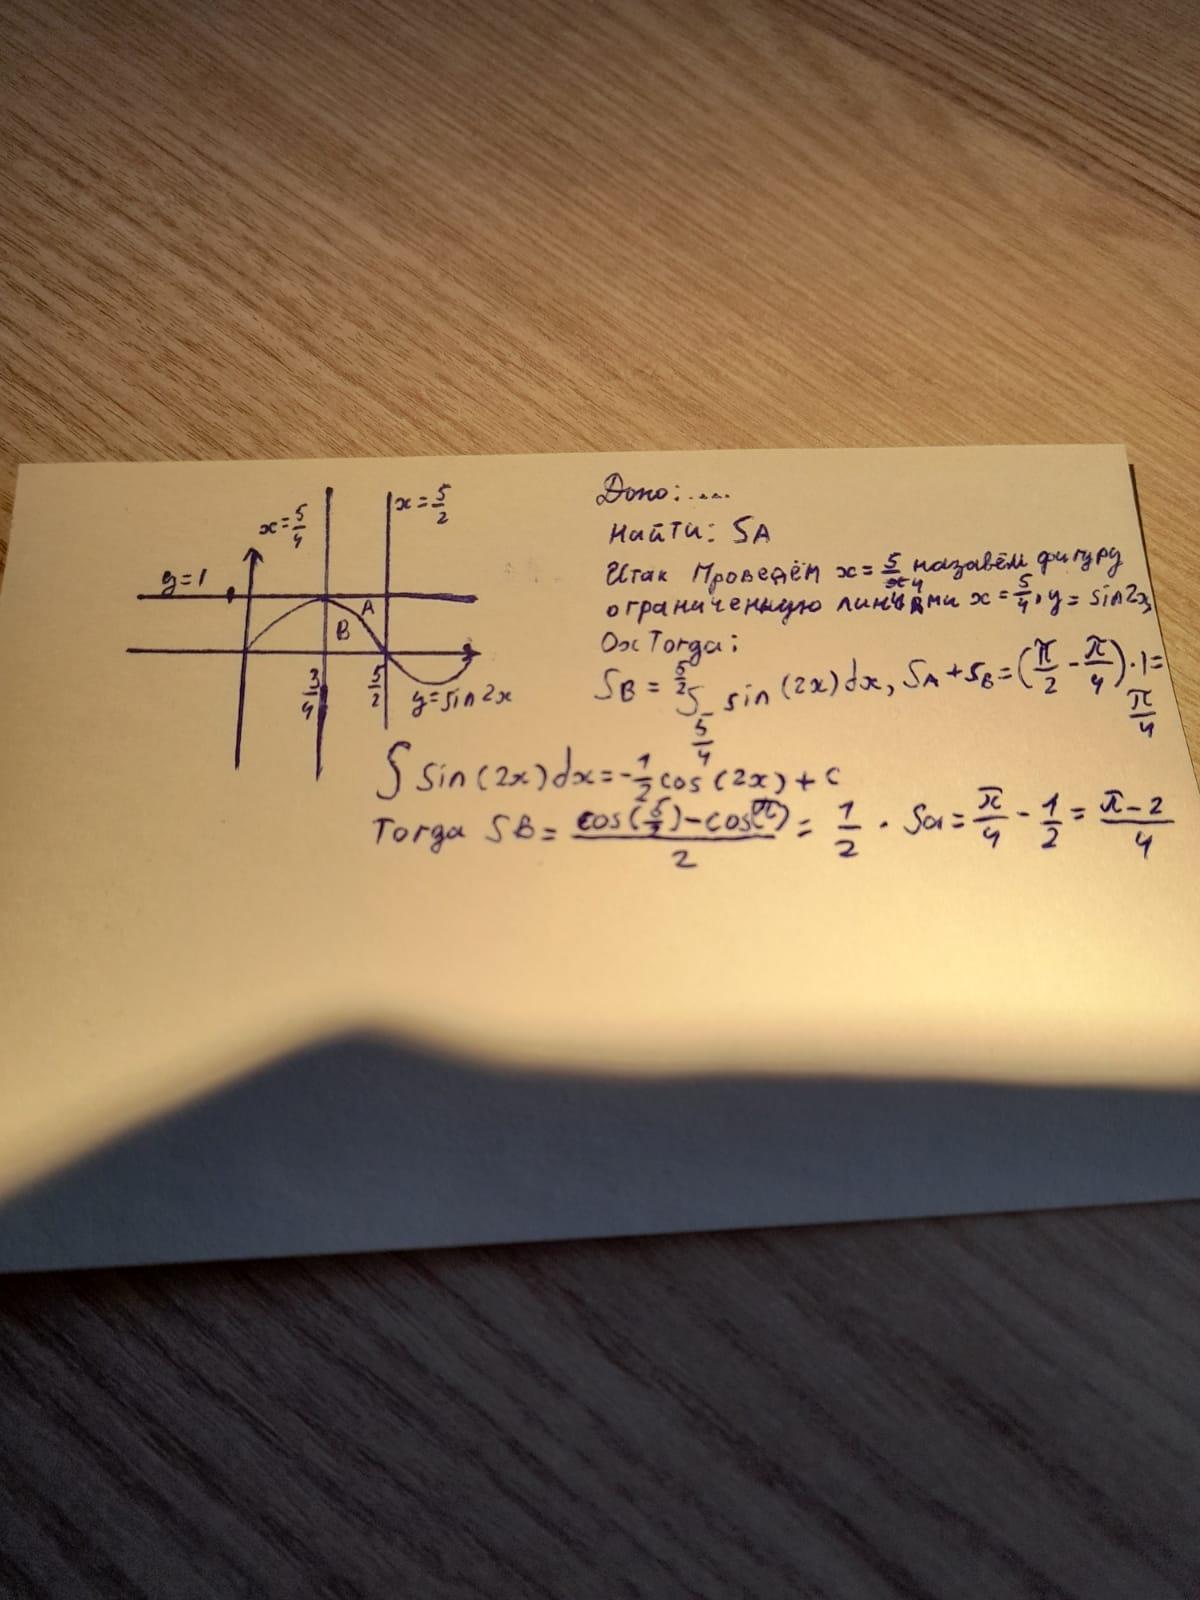 x=5/4
x=5/2
y=1
A
B
3/4
5/2
y=sin2x
Дано:....
Найти: SA
Итак Проведём x=5/4 назавём фигуру
ограниченную линиями x=5/4, y=sin2x,
Ox Тогда:
SB = ∫_{5/4}^{5/2} sin(2x)dx, SA+SB=(π/2-π/4)·1=π/4
∫sin(2x)dx=-1/2cos(2x)+c
Тогда SB=(cos(5/2)-cos(π))/2=1/2. Sa=π/4-1/2=(π-2)/4